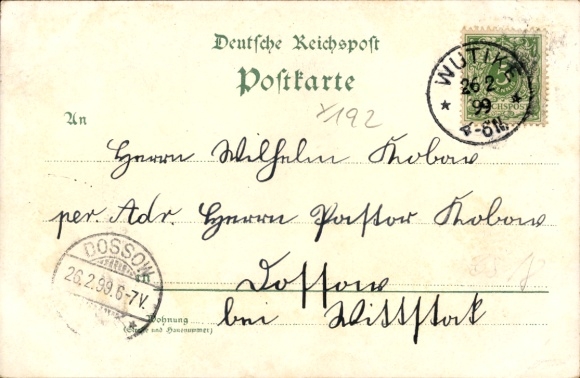 Deutsche Reichspost
Postkarte
WUTIKE
26 2
99
4-5N.
5
REICHSPOST
An
Y192
Herrn Wilhelm Kobow
per Adr. Herrn Pastor Kobow
DOSSOW
26.2.99.6-7V.
in Dossow
bei Wittstock
Wohnung
(Straße und Hausnummer)